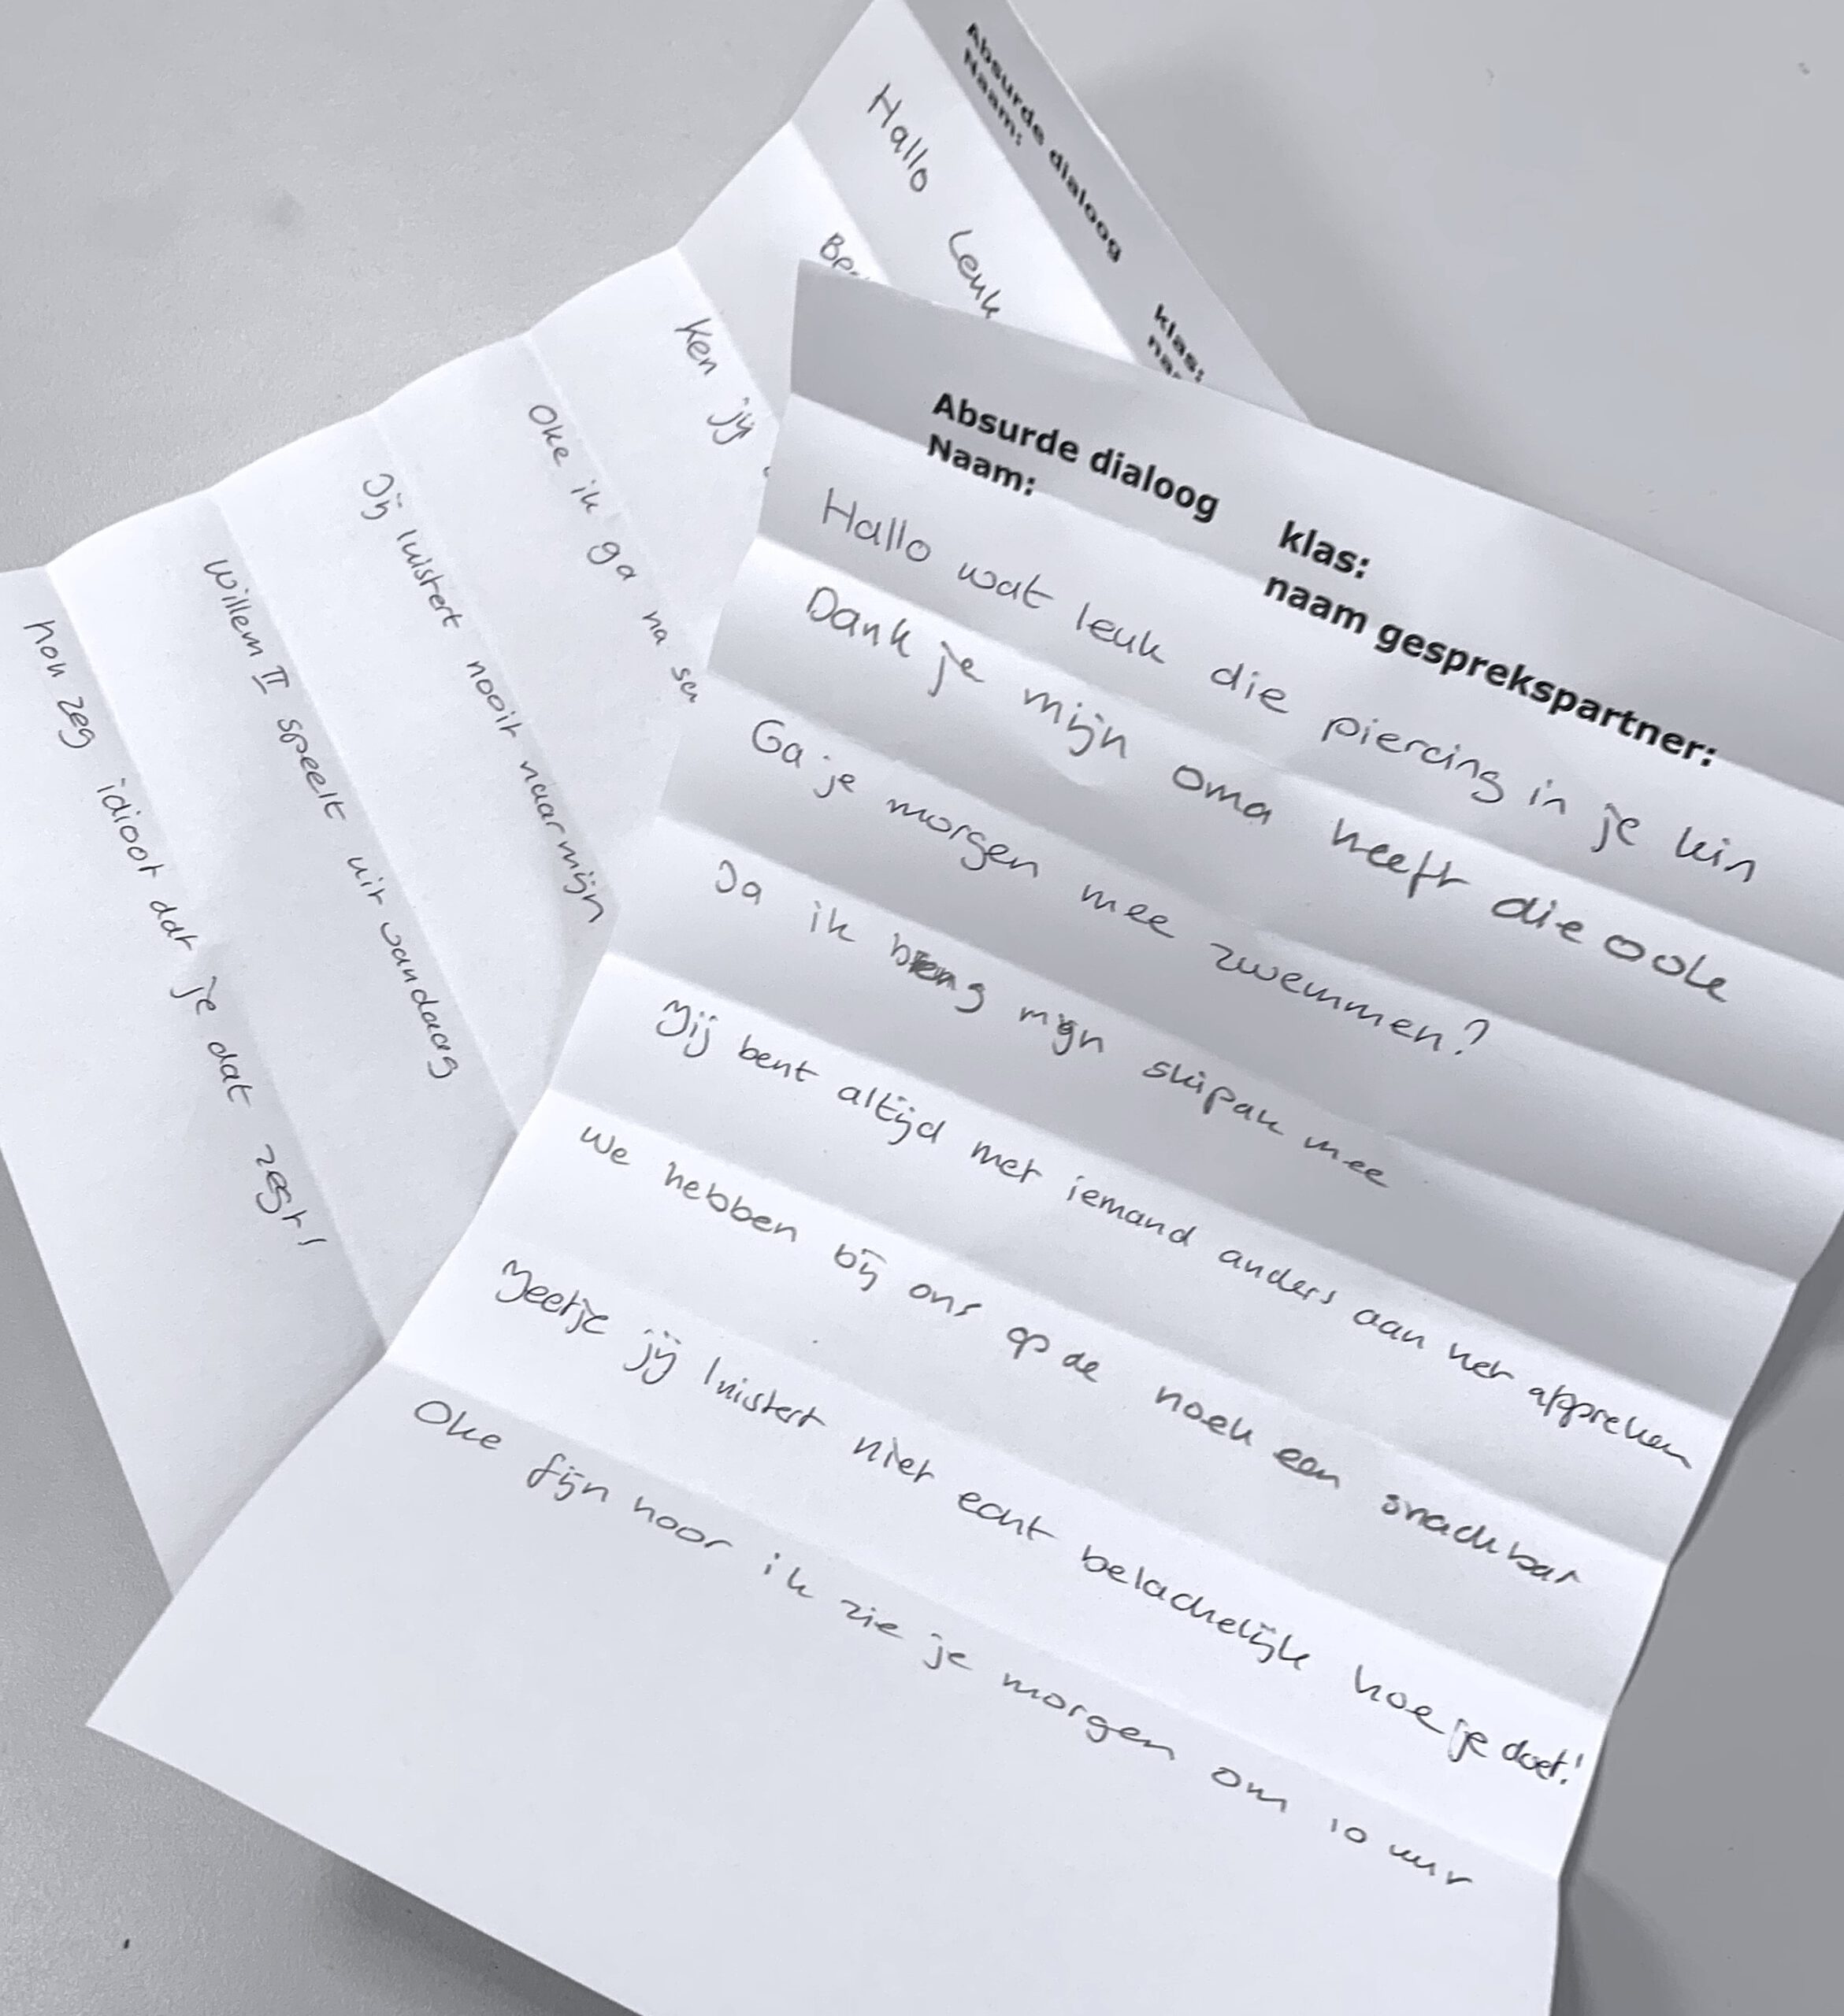 Absurde dialoog klas:
Naam: naam gesprekspartner:
Hallo wat leuk die piercing in je kin
Dank je mijn oma heeft die ook
Ga je morgen mee zwemmen?
Ja ik breng mijn skipak mee
Jij bent altijd met iemand anders aan het appreken
We hebben bij ons op de hoek een snackbar
Jeetje jij luistert niet echt belachelijk hoe je doet!
Oke fijn hoor ik zie je morgen om 10 uur
Absurde dialoog klas:
Naam:
Hallo Leuk
Ken jij
Oke ik ga na
Jij luistert nooit naar mijn
Willem II speelt uit vandaag
Hou zeg idioot dat je dat zegt!